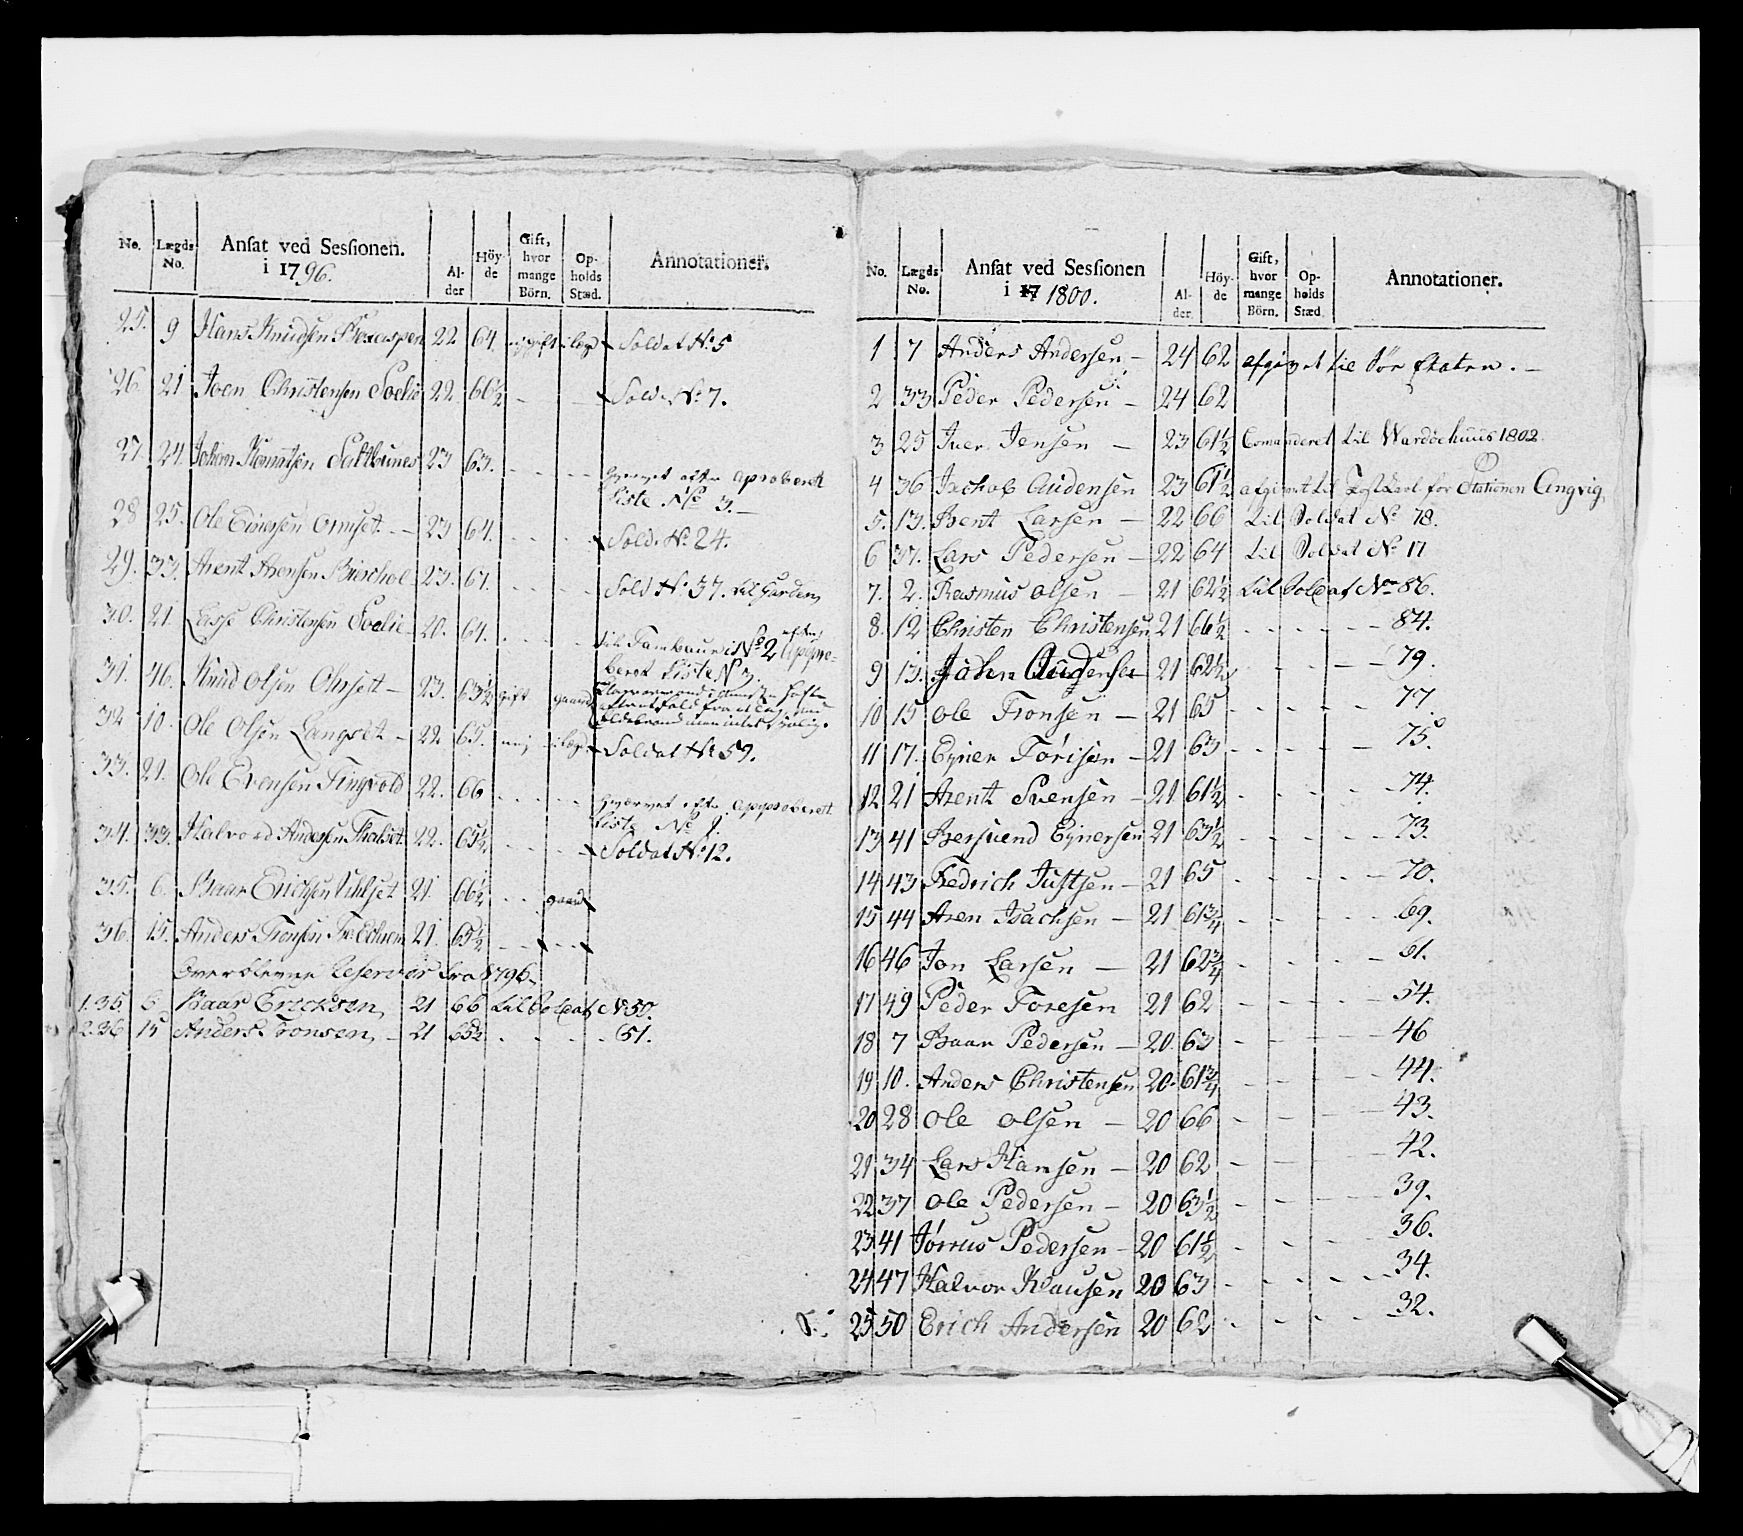 No. Lægds No. Ansat ved Sessionen. i 1796. Alder Höyde Gift, hvor mange Börn. Opholds Stæd. Annotationer.
25. 9 Hans Knudsen 22 64. ugift i legd Soldat No 5
26. 21 Joen Christensen Soelie 22 66½ - - Sold. No 7.
27. 24 Johan 23 63. - - - hvervet efter aproberet
Liste No 3. -
28 25. Ole Einersen Ormset - 23 64. - - - Sold. No 24.
29. 33. Arent Arensen 23. 67. - - - Sold No 37. til Garden
30. 21. Lasse Christensen Soelie 20. 64. - - - til Tambour No 2 efter appro-
beret Liste No 3.
31. 46. Knud Olsen Ohrsett - 23. 63½ gift gaard
32 10. Ole Olsen Langset - 22 65. nej i legd Soldat No 59.
33. 21. Ole Evensen Tingvold 22. 66 - - - hvervet efter approberet
Liste No 9.
34. 33. Halvord Andersen 22. 65½ - - - Soldat No 12.
35. 6. Baar Erichsen 21. 66½ - - gaard
36. 15. Anders Tronsen 21. 65½ - - -
Overblevne Reserver fra 1796.
1. 35. 6 Baar Ericksen, 21 66 til Soldat No 50.
2. 36 15 Anders Tronsen, - 21 65½ - - - - 51.
No. Lægds No. Ansat ved Sessionen i 17 1800. Alder. Höyde Gift, hvor mange Börn. Opholds Stæd. Annotationer.
1 7 Anders Andersen - 24 62 afgivet til Sör Etaten. -
2 33 Peder Pedersen - 24 62
3 25 Iver Jensen - 23 61½ Comanderet til Wardöehuus 1802
4 36 Jachob Audensen 23 61½ afgivet til for Stationen Angvig,
5. 13. Bent Larsen - 22 66 til Soldat No 78.
6 37. Lars Pedersen - 22 64 til Soldat No 17
7. 2. Rasmus Olsen - 21 62½ til Soldat No 86.
8. 12 Christen Christensen 21 66½ - - - - 84.
9 13. John Audensen 21 62½ - - - 79.
10 15 Ole Tronsen - 21 65 - - - - 77.
11 17. Eyner Torisen - 21 63 - - - - 75.
12 21 Arent Svensen - 21 61½ - - - - 74.
13 41 Bersvend Eynersen 21 63½ - - - - 73.
14 43 Fredrich Justsen - 21 65 - - - - 70.
15 44 Aren Isachsen - 21 61¾ - - - - 69.
16 46 Jon Larsen - 21 62¾ - - - - 61.
17 49 Peder Toresen 21 62 - - - - 54.
18 7 Baar Pedersen - 20. 63 - - - - 46
19 10. Anders Christensen 20. 61¾ - - - - 44.
20 28 Ole Olsen - 20 66 - - - - 43.
21 34 Lars Hansen - 20 62 - - - - 42.
22 37 Ole Pedersen - 20 63½ - - - - 39.
23 41 Jörrus Pedersen - 20 61½ - - - - 36.
24 47 Halvor Klausen 20 63 - - - - 34.
25 50 Erich Andersen 20 62 - - - - 32.